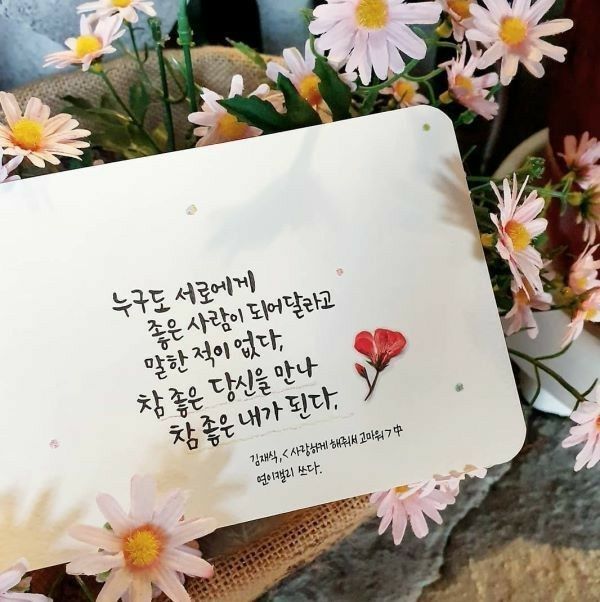 누구도 서로에게
좋은 사람이 되어달라고
말한 적이 없다,
참 좋은 당신을 만나
참 좋은 내가 된다,
김재식, <사랑하게 해줘서 고마워> 中
연이캘리 쓰다.